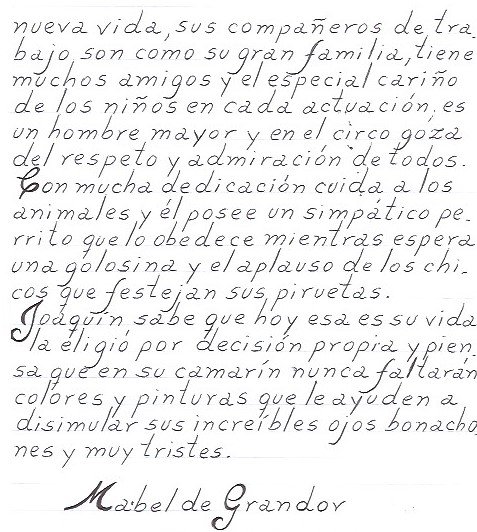 nueva vida, sus compañeros de tra_
bajo son como su gran familia, tiene
muchos amigos y el especial cariño
de los niños en cada actuación, es
un hombre mayor y en el circo goza
del respeto y admiración de todos.
Con mucha dedicación cuida a los
animales y él posee un simpático pe_
rrito que lo obedece mientras espera
una golosina y el aplauso de los chi_
cos que festejan sus piruetas.
Joaquín, sabe que hoy esa es su vida
la eligió por decisión propia y pien_
sa que en su camarín nunca faltarán
colores y pinturas que le ayuden a
disimular sus increíbles ojos bonacho_
nes y muy tristes.
Mabel de Grandov